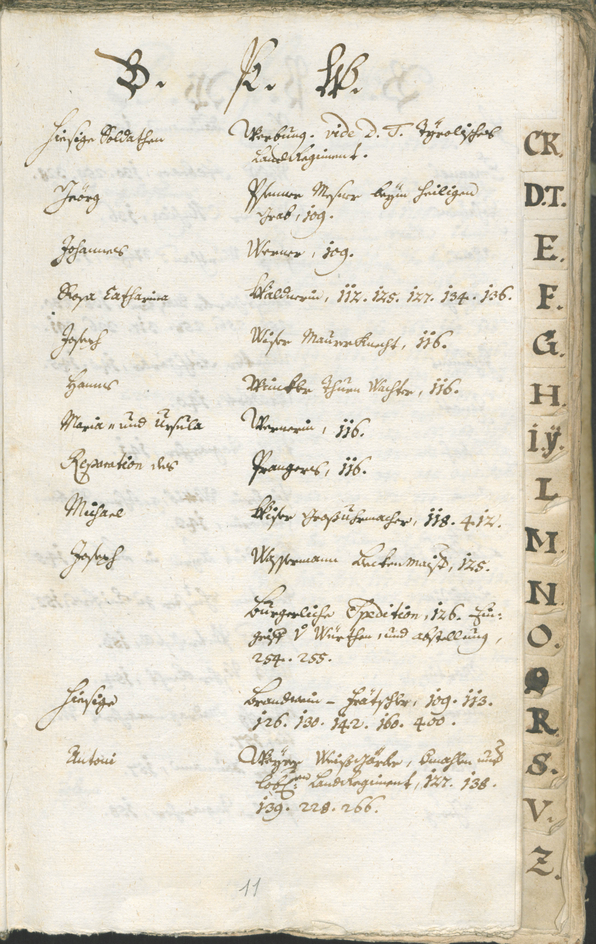 B. P. W.
Hiesige Soldathen Werbung. vide D. T. Tyrolisches
Land Regiment.
Jeörg Pfenner Mesner beym heiligen
Grab, 109.
Johannes Werner, 109.
Rosa Catharina Waldnerin, 112. 125. 127. 134. 136.
Joseph Wiser Maurerknecht, 116.
Hanns Winckler Thurn Wachter, 116.
Maria und Ursula Wernerin, 116.
Reparation des Prangers, 116.
Michael Wiser Großuhrmacher, 118. 412.
Joseph Wassermann Beckenmaist, 125.
Bürgerliche Spedition, 126.
und abstellung,
254. 255.
Hiesige Brandwein - Frätschler, 109. 113.
126. 130. 142. 160. 400.
Antoni und
Löbl. Land Regiment, 127. 138.
139. 228. 266.
11
CK.
D.T.
E.
F.
G.
H.
i.ÿ.
L
M.
N.
O.
Q
R.
S.
V.
Z.